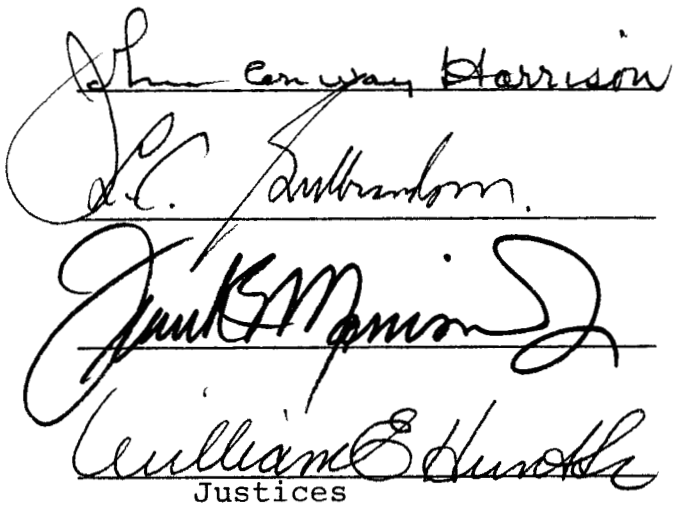 John Conway Harrison
L.C. Gulbrandson.
Frank B. Morrison Jr
William E Hunt Sr
Justices